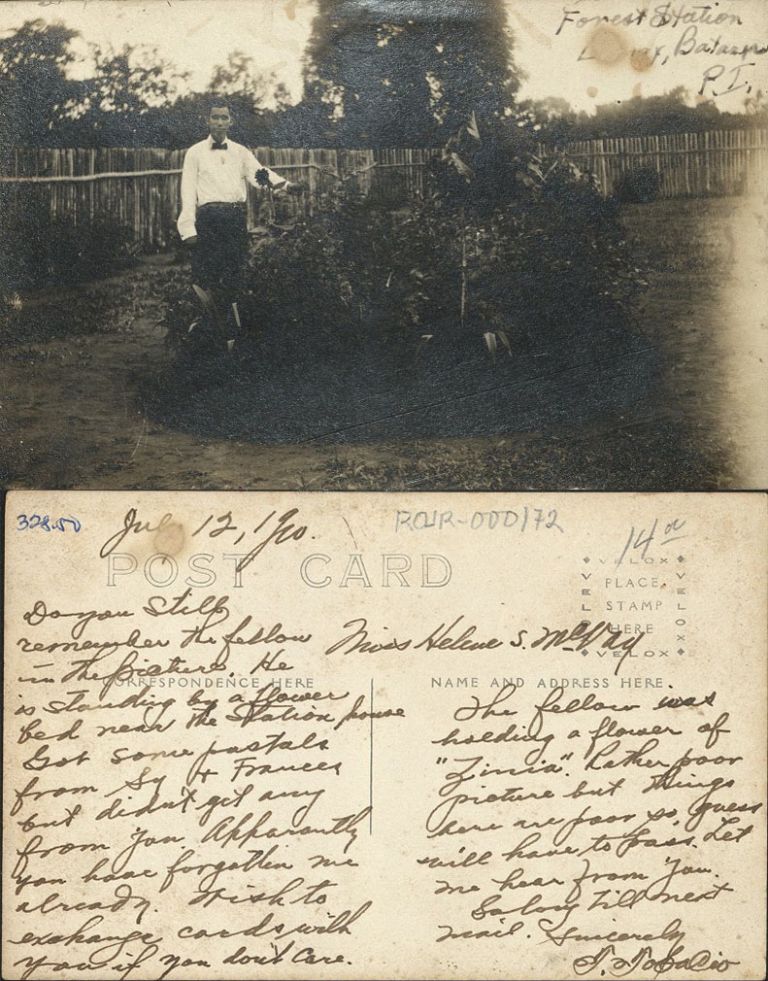 Forest Station
Bataan
P.I.
328.50
July 12, 1910.
RCUR-000172
14
POST CARD
VELOX
VELOX
VELOX
VELOX
PLACE
STAMP
HERE
Do you Still
remember the fellow
in the picture. He
is standing by a flower
bed near the Station house
Got some postals
from Sy & Frances
but didn't get any
from you. Apparantly
you have forgotten me
already. Wish to
exchange cards with
you if you don't care.
CORRESPONDENCE HERE
Miss Helene S. McVay
NAME AND ADDRESS HERE
The fellow was
holding a flower of
"Zinia". Rather poor
picture but things
here are poor so guess
will have to pass. Let
me hear from you.
So long till next
mail. Sincerely